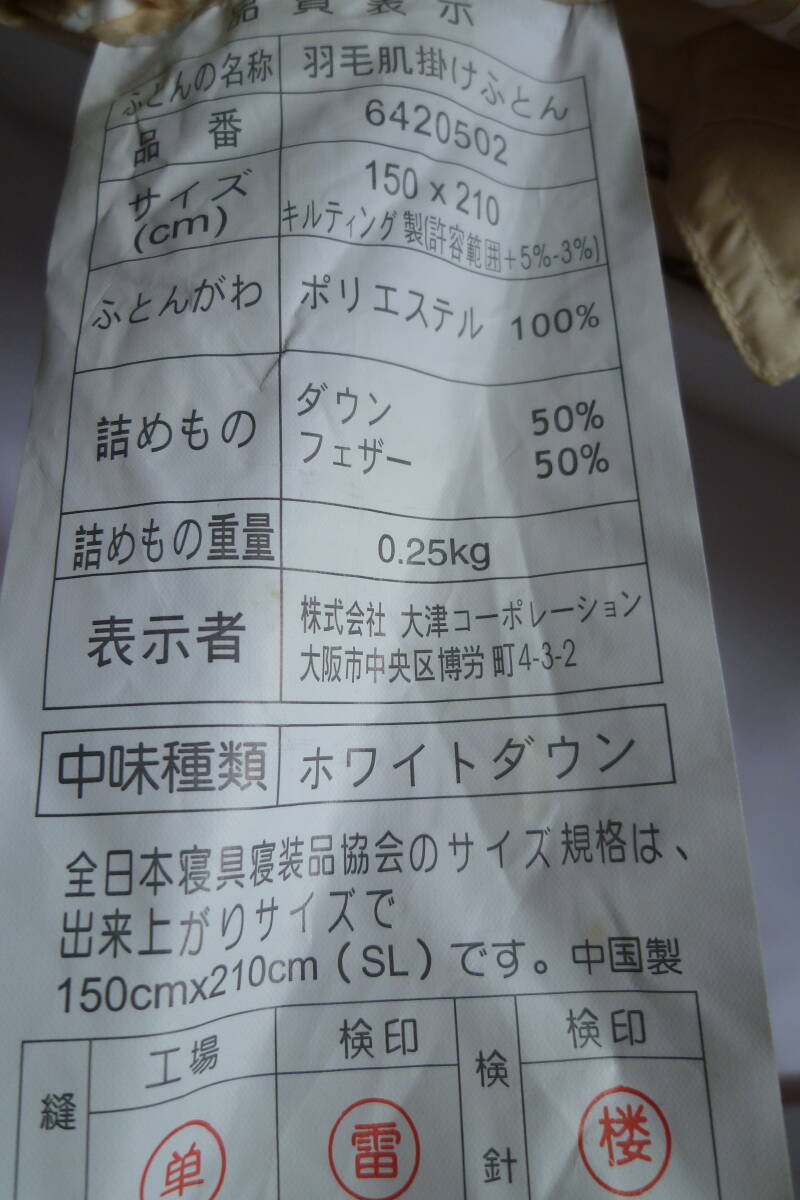 品質表示
ふとんの名称 羽毛肌掛けふとん
品番 6420502
サイズ(cm) 150 x 210
キルティング製(許容範囲+5%-3%)
ふとんがわ ポリエステル 100%
詰めもの ダウン 50%
フェザー 50%
詰めもの重量 0.25kg
表示者 株式会社 大津コーポレーション
大阪市中央区博労町4-3-2
中味種類 ホワイトダウン
全日本寝具寝装品協会のサイズ規格は、
出来上がりサイズで
150cmx210cm(SL)です。中国製
縫 工場 検印 検針 検印
単 雷 楼